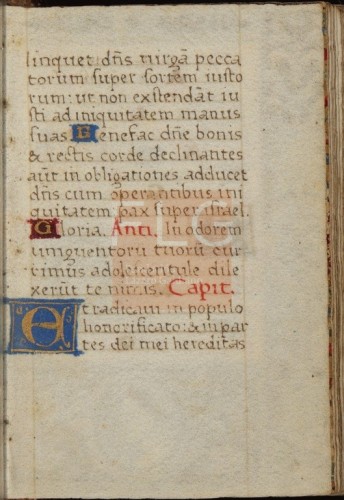 linquet dn̄s virgā pecca
torum super sortem iusto
rum: ut non extendāt iu
sti ad iniquitatem manus
suas Benefac dn̄e bonis
& rectis corde declinantes
aūt in obligationes adducet
dn̄s cum operantibus ini
quitatem pax super israel.
Gloria. Anti. In odorem
unguentorū tuorū cur
rimus adolescentule dile
xerūt te nimis. Capit.
Et radicavi in populo
honorificato: & in par
tes dei mei hereditas